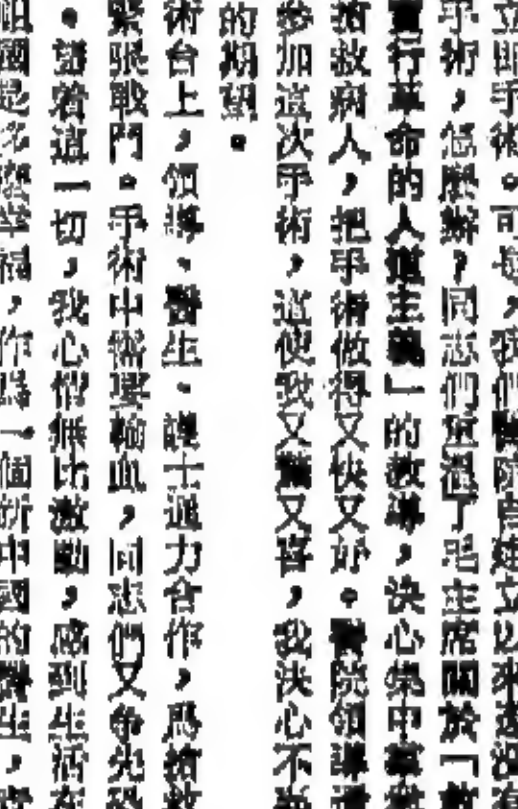 立即手術。可是,我們醫院自建立以來還沒有
手術,怎麼辦?同志們重溫了毛主席關於「救
實行革命的人道主義」的教導,決心集中
搶救病人,把手術做得又快又好。醫院領導
參加這次手術,這使我又驚又喜,我決心不
的期望。
術台上,領導、醫生、護士通力合作,爲搶救
緊張戰鬥。手術中需要輸血,同志們又爭先恐
。望着這一切,我心情無比激動,感到生活在
祖國是多麼幸福,作爲一個新中國的醫生,